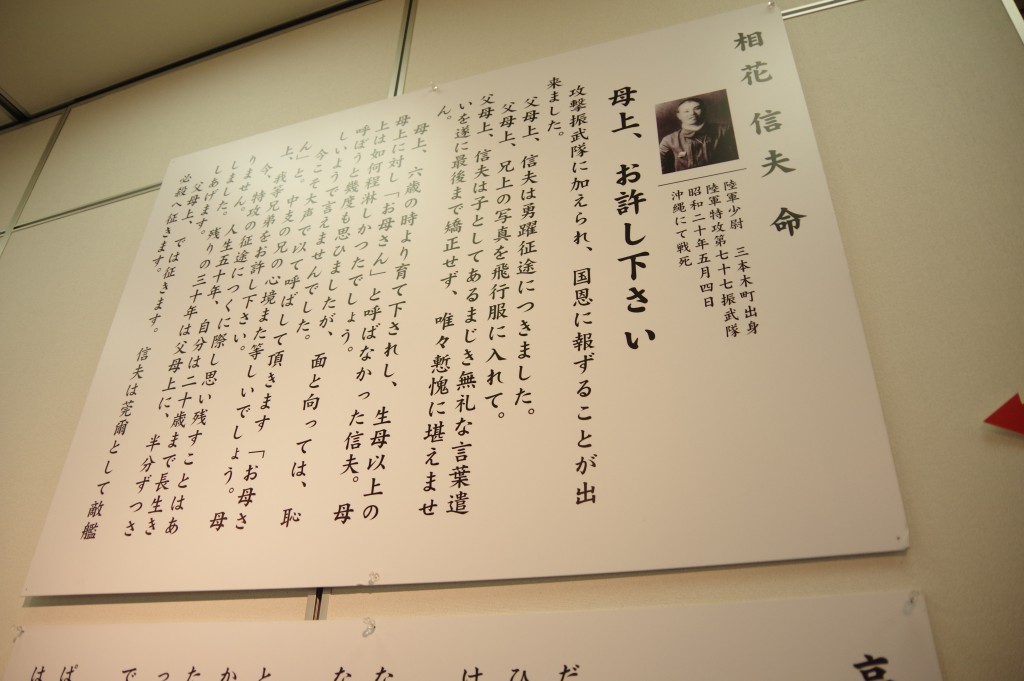 相花信夫命
陸軍少尉 三本木町出身
陸軍特攻第七十七振武隊
昭和二十年五月四日
沖縄にて戦死
母上、お許し下さい
攻撃振武隊に加えられ、国恩に報ずることが出
来ました。
父母上、信夫は勇躍征途につきました。
父母上、兄上の写真を飛行服に入れて。
父母上、信夫は子としてあるまじき無礼な言葉遣
いを遂に最後まで矯正せず、唯々慙愧に堪えませ
ん。
母上、六歳の時より育て下されし、生母以上の
母上に対し「お母さん」と呼ばなかった信夫。母
上は如何程淋しかったでしょう。
呼ぼうと幾度も思ひましたが、面と向っては、恥
しいようで言えませんでした。
今こそ大声で以て呼ばして頂きます「お母さ
ん」と。中支の兄の心境また等しいでしょう。母
上、我等兄弟をお許し下さい。
今、特攻の征途につくに際し思い残すことはあ
りません。人生五十年、自分は二十歳まで長生き
しました。残りの三十年は父母上に、半分ずつさ
しあげます。
父母上、では征きます。信夫は莞爾として敵艦
必殺へ征きます。
京
だ
ひ
け
な
な
と
か
た
っ
で
ぱ
は